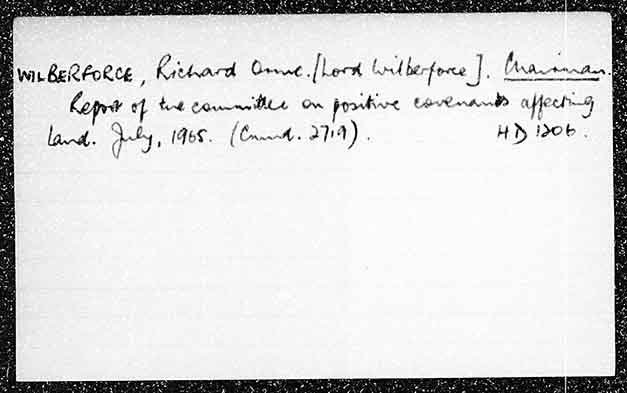 WILBERFORCE, Richard Orme. [Lord Wilberforce]. Chairman.
Report of the committee on positive covenants affecting
land. July, 1965. (Cmnd. 2719). HD 1206.